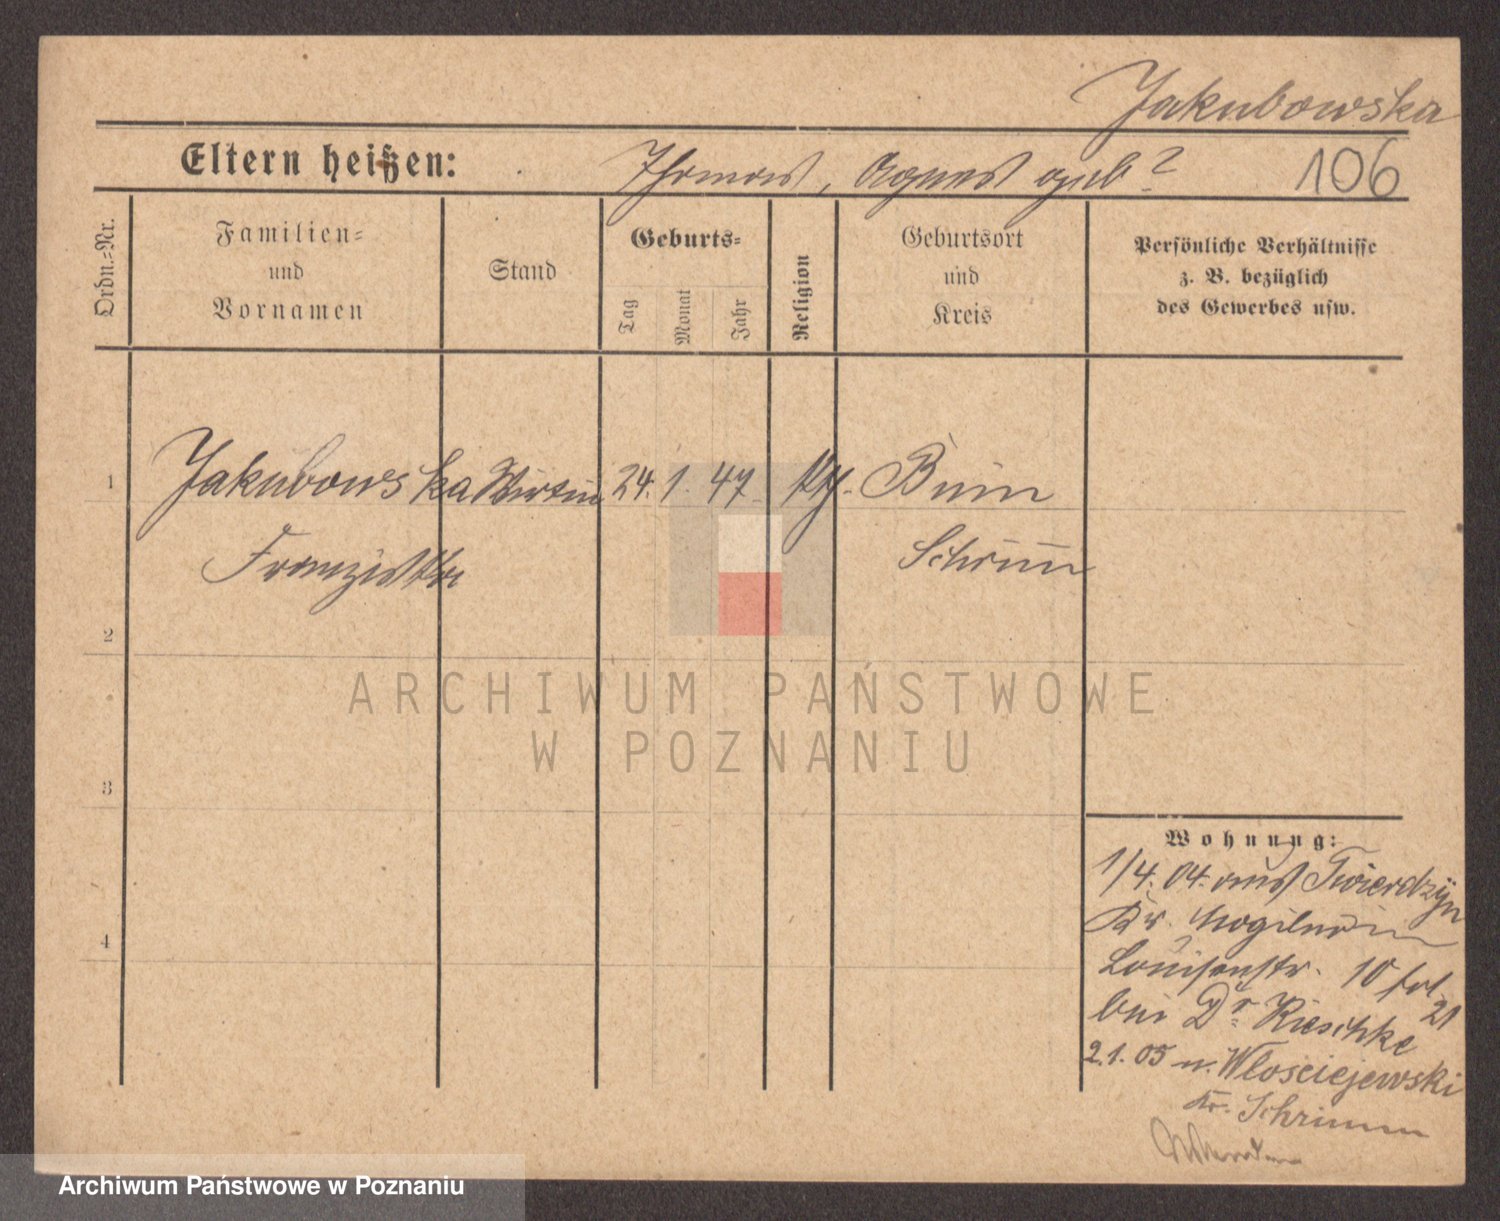 Jakubowska
Eltern heißen: Thomas, Agnes geb?
106
Ordn.=Nr.
Familien=
und
Vornamen
Stand
Geburts=
Tag
Monat
Jahr
Religion
Geburtsort
und
Kreis
Persönliche Verhältnisse
z. B. bezüglich
des Gewerbes usw.
1 Jakubowska Wirtin 24. 1. 47. kth. Bnin
Franziska Schrim
2
3
4
Wohnung:
1/4. 04. aus Twierdzyn
Kr. Mogilno in
Louisenstr. 10
bei Dr.
21
2.1.05 n. Wlosciejewski
Kr. Schrimm
ARCHIWUM PAŃSTWOWE
W POZNANIU
Archiwum Państwowe w Poznaniu